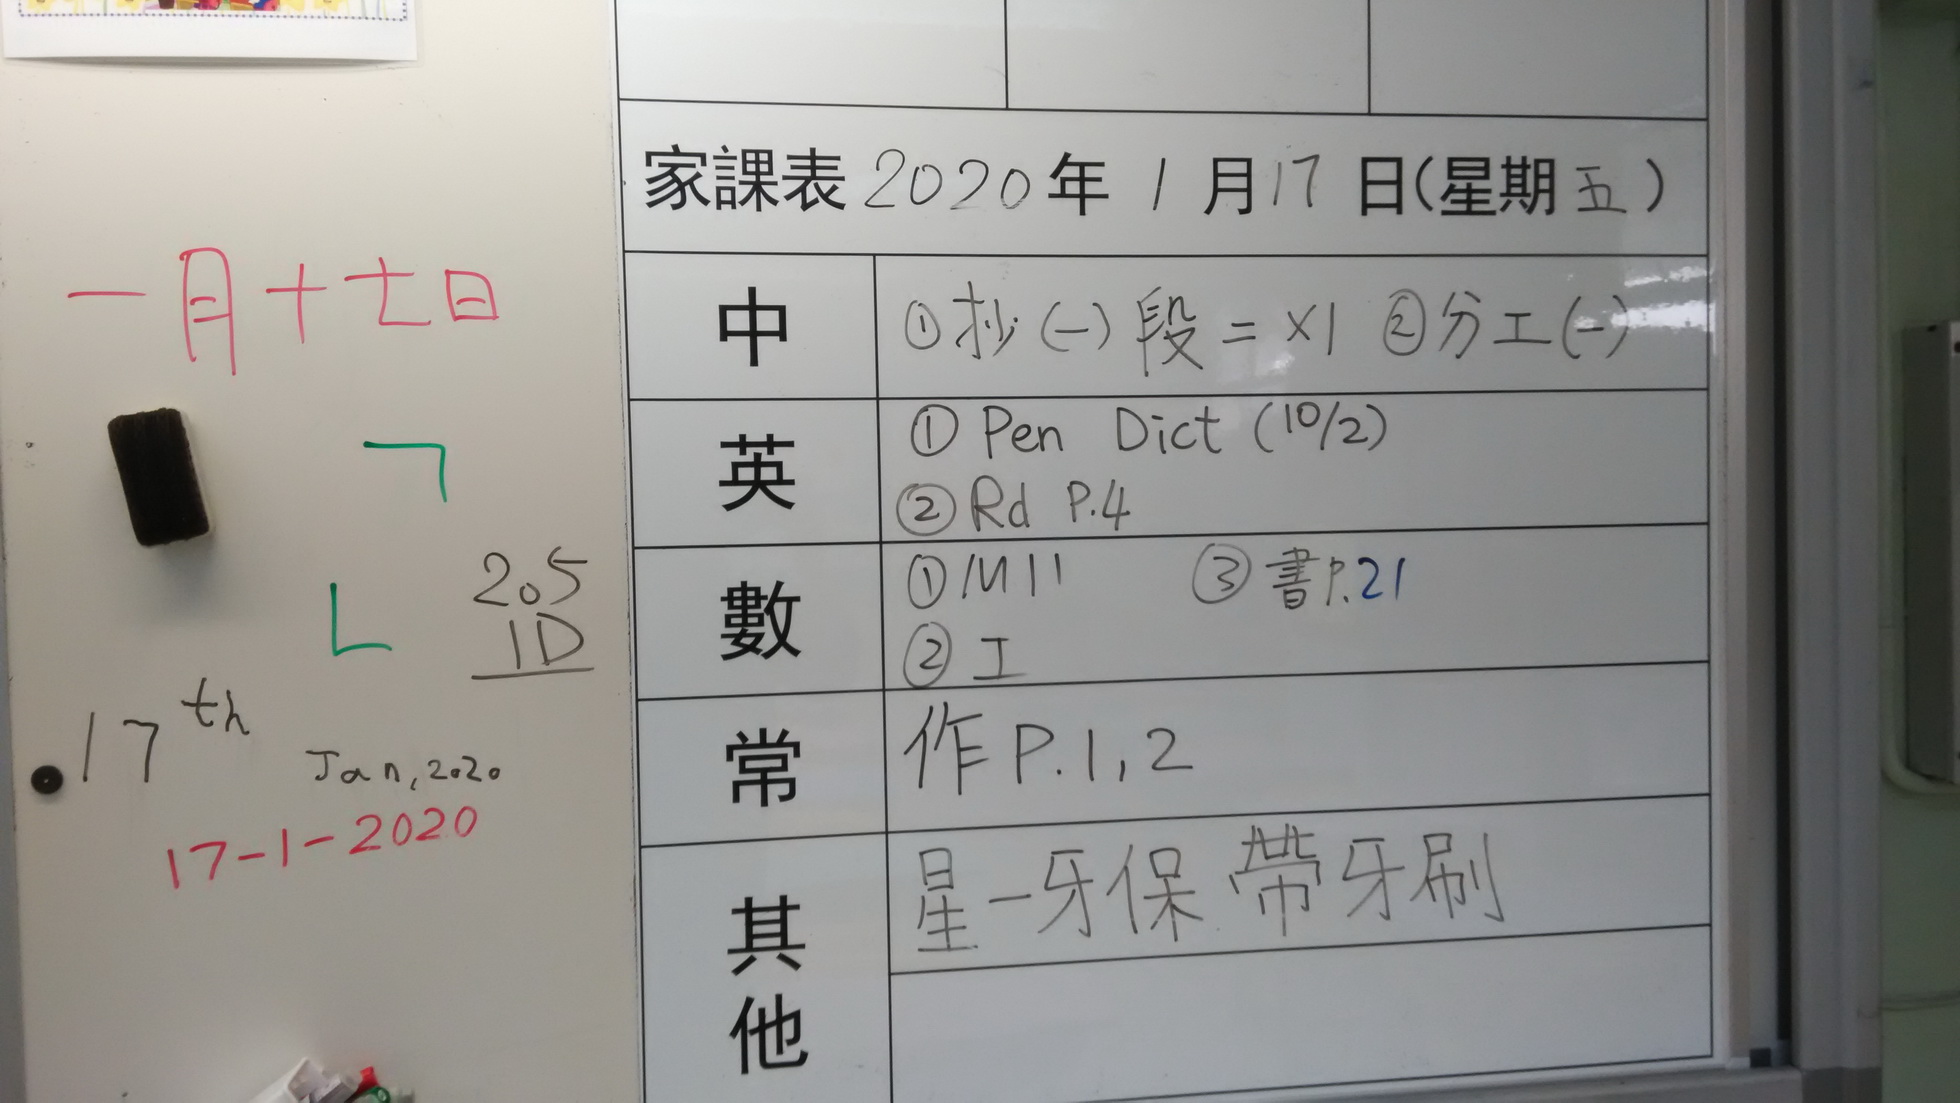 一月十七日
2.5
1D
17th
Jan, 2020
17-1-2020
家課表 2020年 1月17日(星期五)
中
①抄(一)段二×1 ②分工(一)
英
① Pen Dict (10/2)
② Rd P.4
數
①M11 ③書P.21
②工
常
作P.1,2
其他
星一牙保 帶牙刷